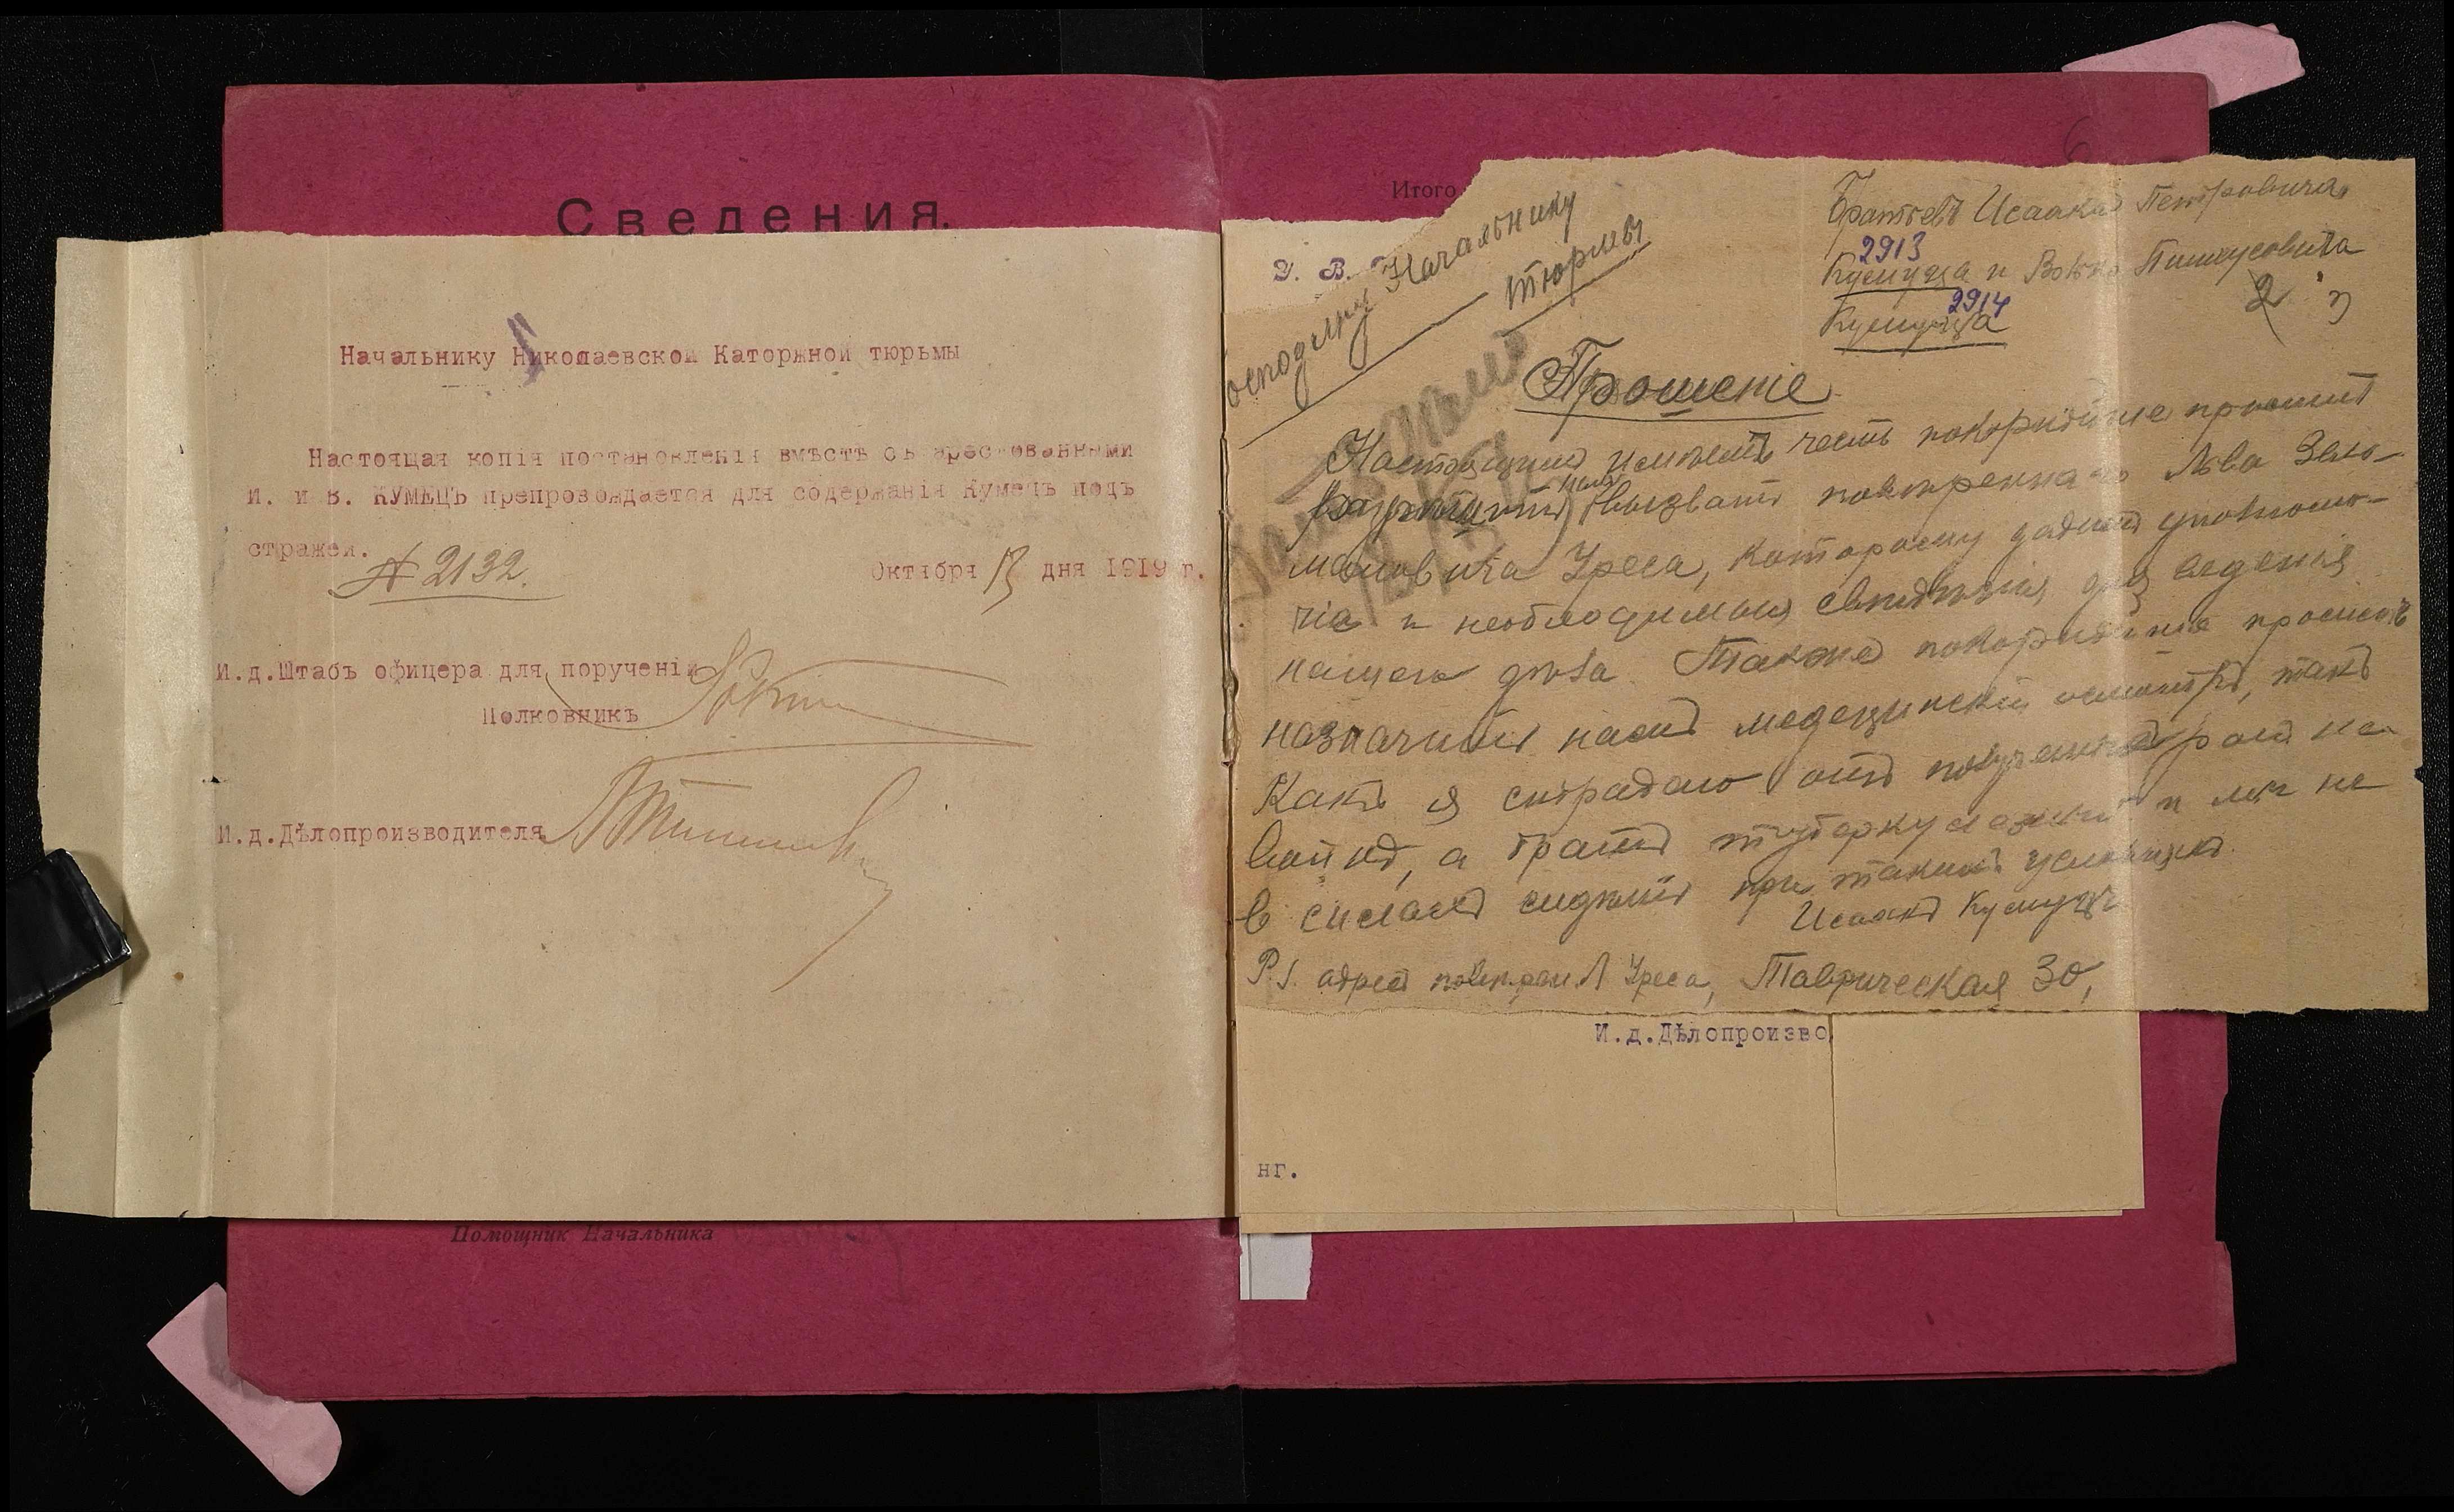 Сведения.
Начальнику Николаевской Каторжной тюрьмы
Настоящая копія постановленія вмѣстѣ съ арестованными
И. и В. КУМЕЦЪ препровождается для содержанія Кумецъ подъ
стражей.
№ 2132.
Октября 13 дня 1919 г.
И.д.Штабъ офицера для порученій
Полковникъ
И.д.Дѣлопроизводителя
Помощник Начальника
6
Итого
Д. В.
осподину Начальнику
тюрьмы
Братьевъ Исаака Петровича
2913
и Пинхусовича
2914
2
Прошеніе
Настоящимъ имѣемъ честь покорнѣйше просить
разрѣшить намъ вызвать повѣреннаго Льва
Уреса, которому дадимъ уполномо-
чія и необходимыя свидѣнія для веденія
нашего дѣла. Также покорнѣйше просимъ
назначить намъ медецинскій осмотръ, такъ
какъ я страдаю отъ на
войнѣ, а братъ туберкулезный и мы не
в силахъ сидѣть при такихъ условіяхъ.
Исаакъ
P.S. адресъ повѣрен. Л Уреса, Таврическая 30,
И.д.Дѣлопроизво
нг.